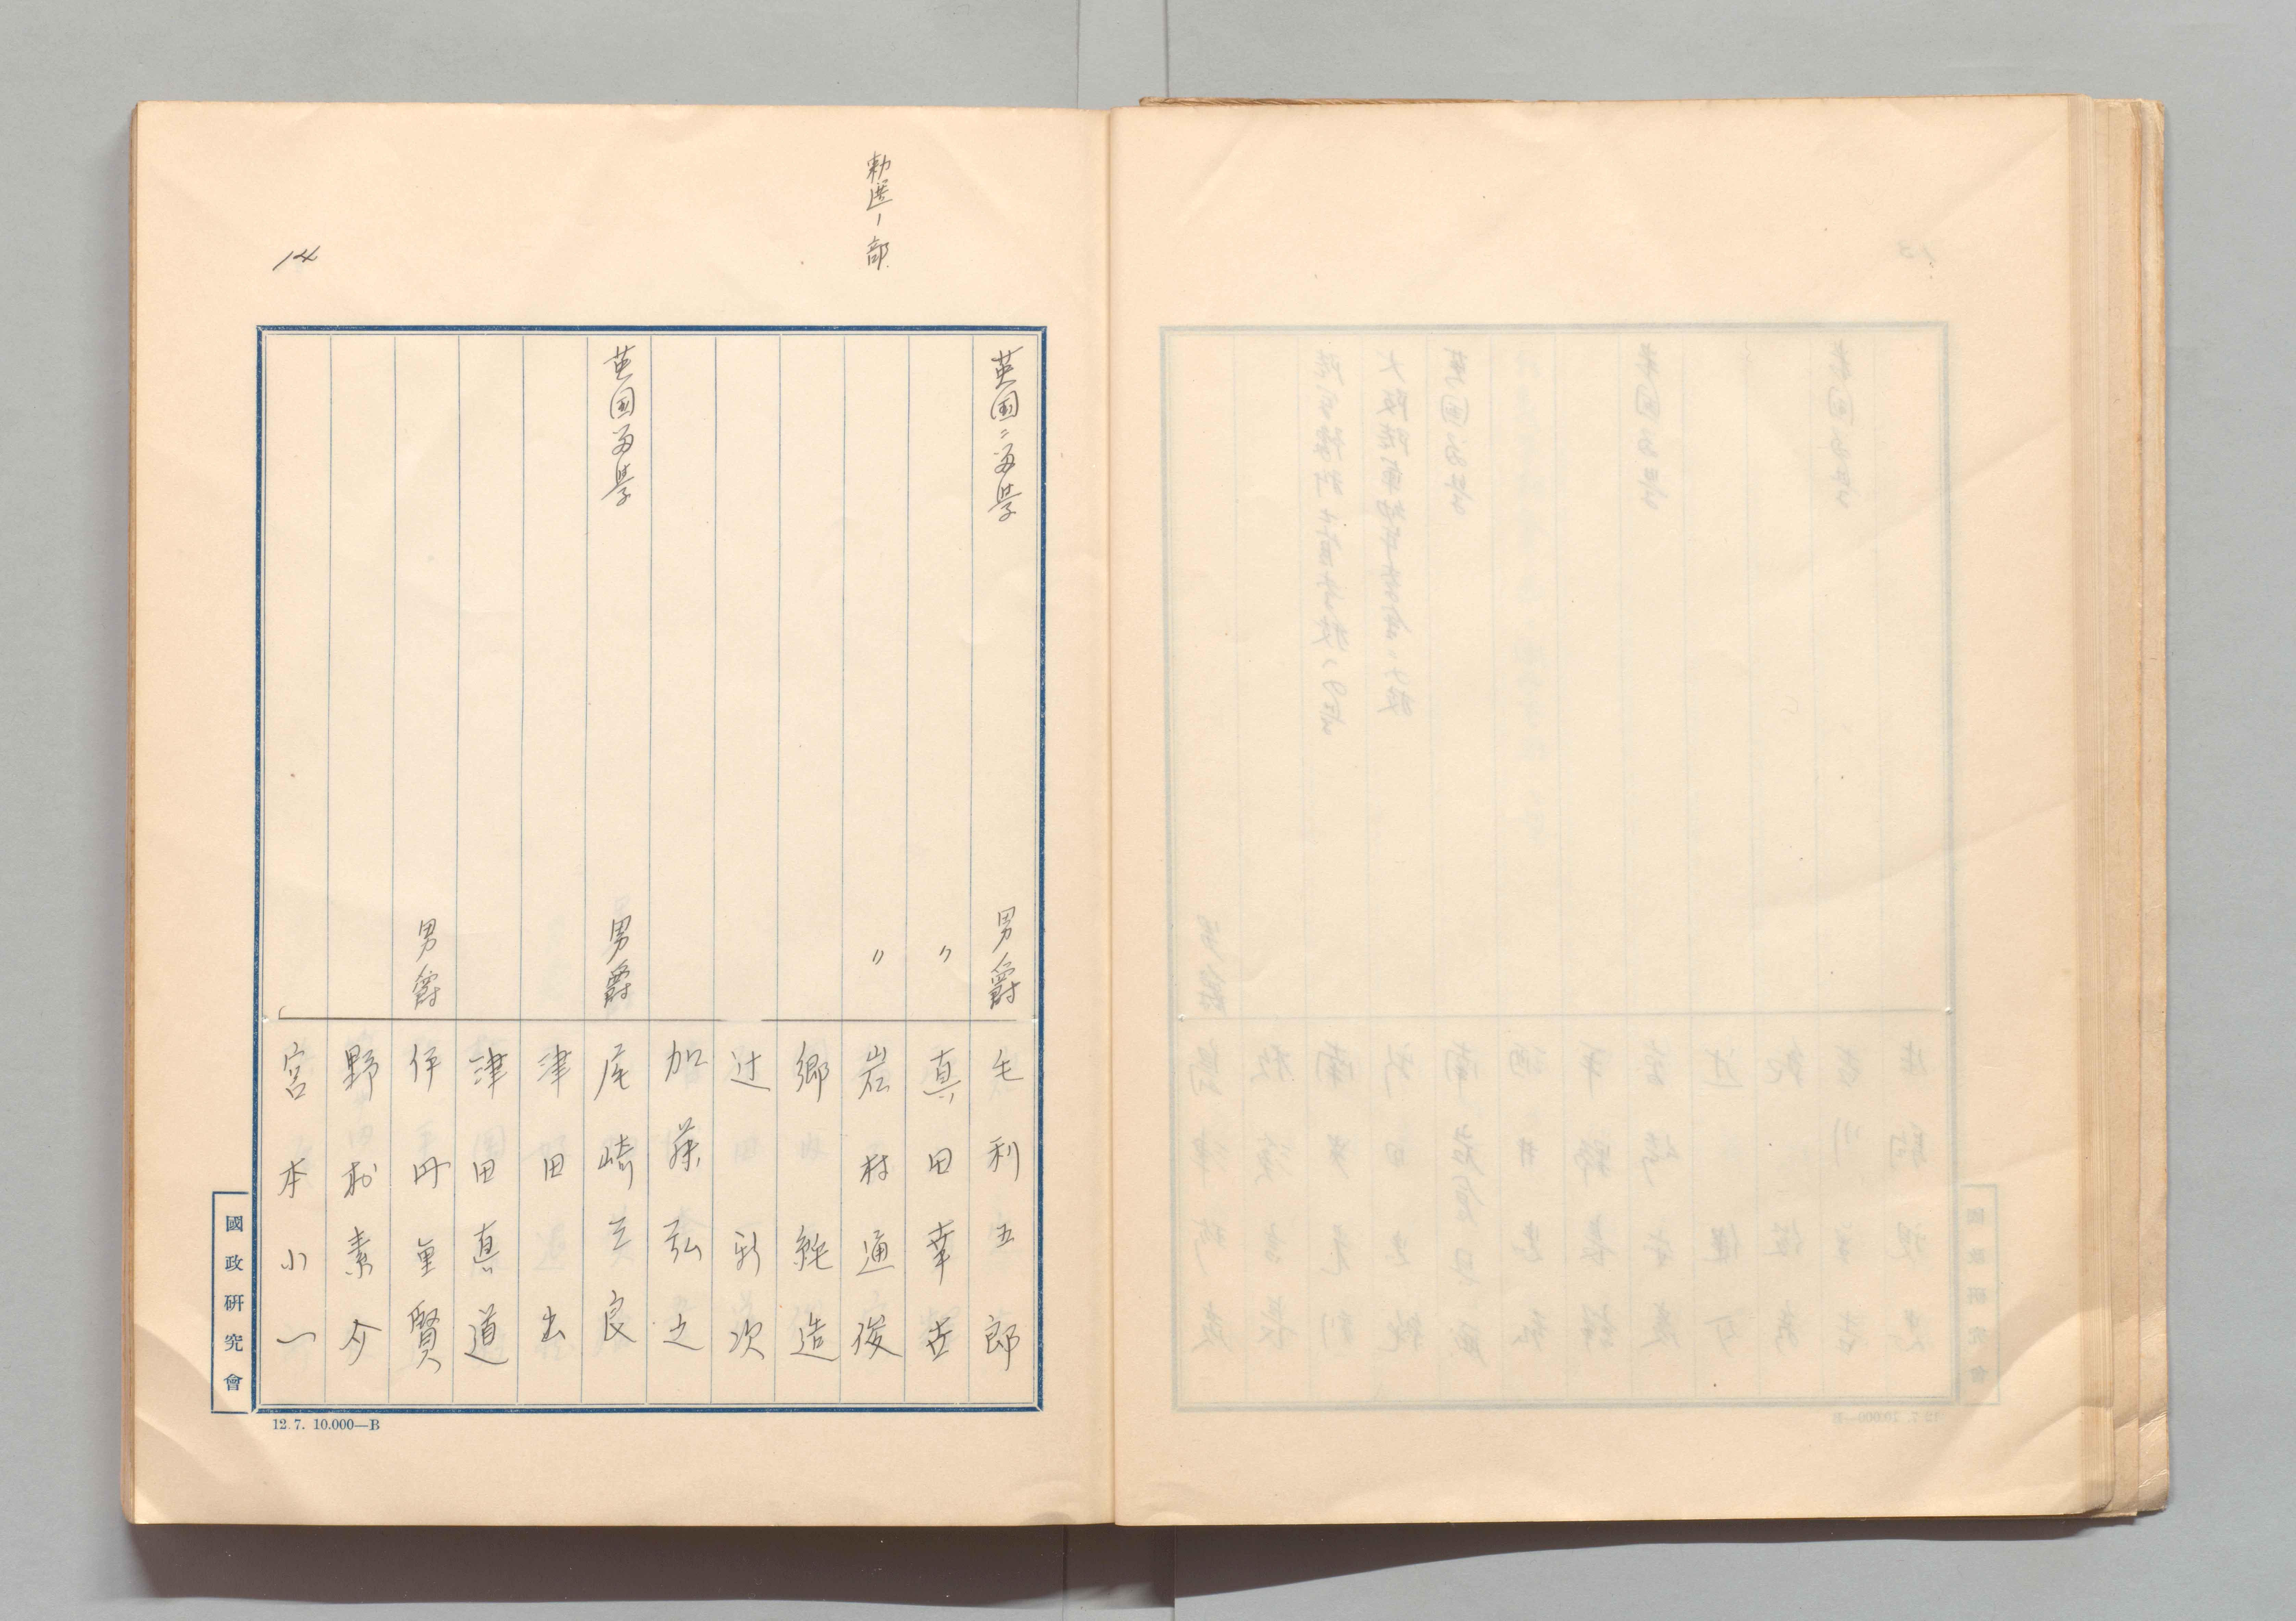 勅選ノ部
14
英国ニ留学 男爵 毛利五郎
〃 真田幸世
〃 岩村通俊
郷純造
辻新次
加藤弘之
英国留学 男爵 尾崎三良
津田出
津田真道
男爵 伊丹重賢
野村素介
宮本小一
國政研究會
12.7. 10.000—B